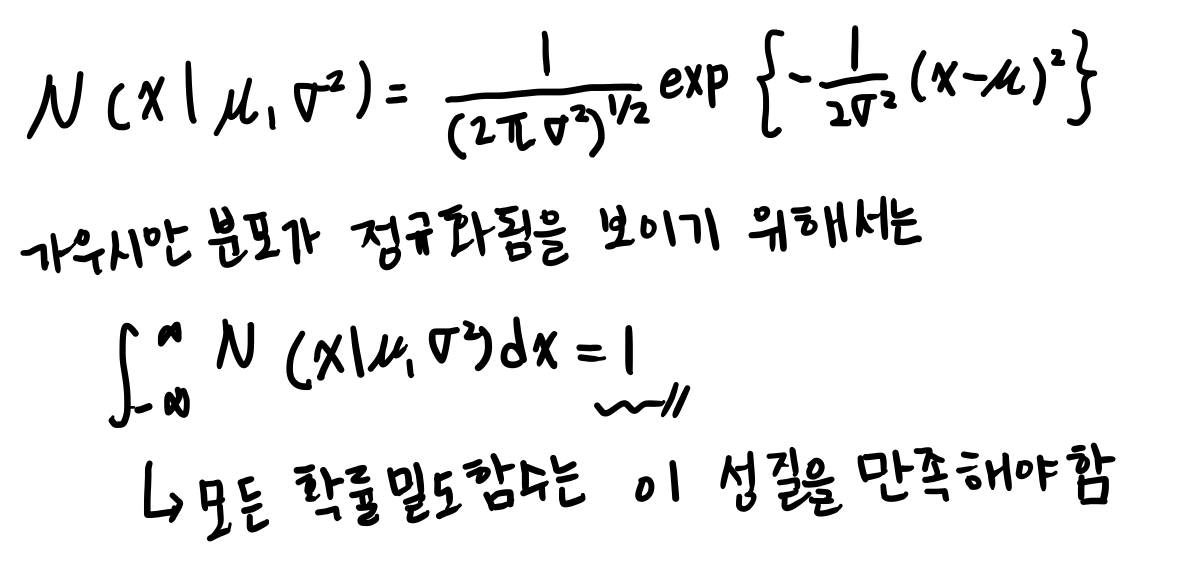 N(x|μ, σ²) = 1/(2πσ²)^1/2 exp {-1/2σ² (x-μ)²}
가우시안 분포가 정규화됨을 보이기 위해서는
∫_-∞^∞ N (x|μ, σ²)dx = 1
↳ 모든 확률밀도함수는 이 성질을 만족해야 함